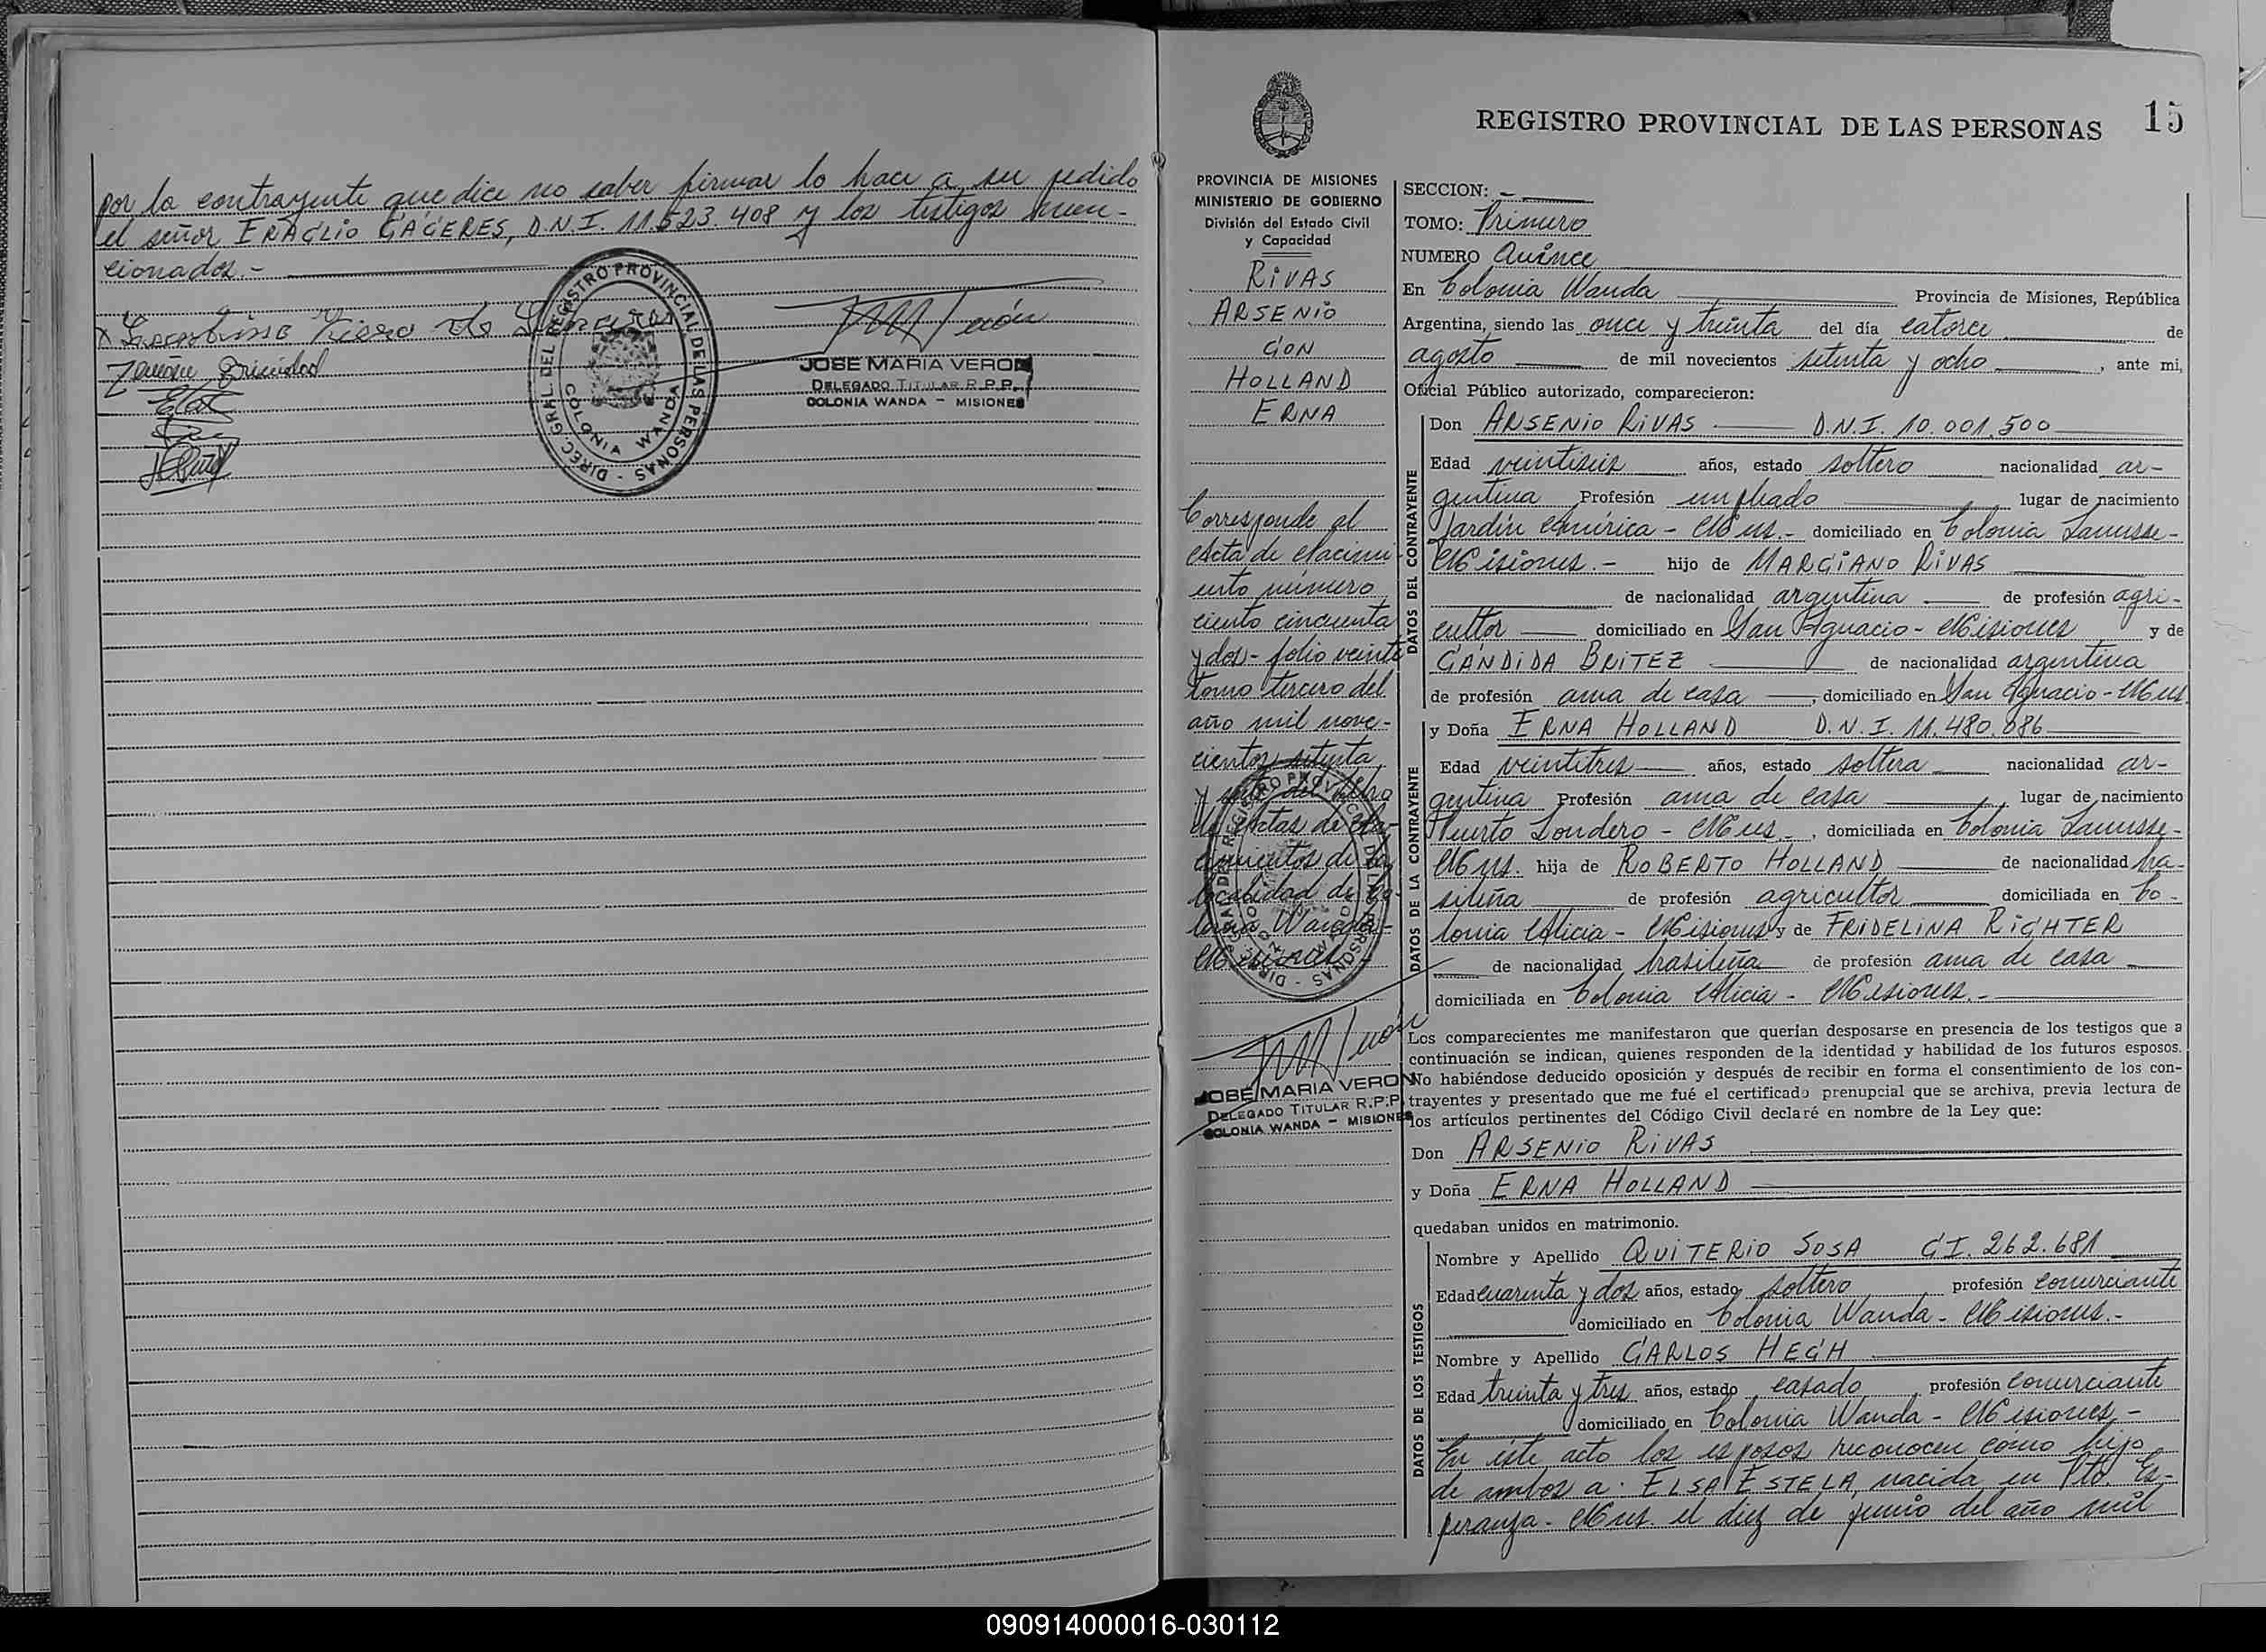 por la contrayente que dice no saber firmar lo hace a su pedido
el señor ERAGLIO CACERES, D.N.I. 11.523.408 y los testigos men-
cionados.-
DIREC. GRAL. DEL REGISTRO PROVINCIAL DE LAS PERSONAS -
COLONIA WANDA
JOSE MARIA VERON
DELEGADO TITULAR R.P.P.
COLONIA WANDA - MISIONES
REGISTRO PROVINCIAL DE LAS PERSONAS 15
PROVINCIA DE MISIONES
MINISTERIO DE GOBIERNO
División del Estado Civil
y Capacidad
RIVAS
ARSENIO
CON
HOLLAND
ERNA
Corresponde al
Acta de Nacimi
ento número
ciento cincuenta
y dos - folio veinte
tomo tercero del
año mil nove-
cientos setenta
y del libro
de Actas de Na-
cimientos de la
localidad de Co-
lonia Wanda -
Misiones -
JOSE MARIA VERON
DELEGADO TITULAR R.P.P.
COLONIA WANDA - MISIONES
SECCION: -
TOMO: Primero
NUMERO Quince
En Colonia Wanda Provincia de Misiones, República
Argentina, siendo las once y treinta del día catorce de
agosto de mil novecientos setenta y ocho, ante mi,
Oficial Público autorizado, comparecieron:
DATOS DEL CONTRAYENTE
Don ARSENIO RIVAS D.N.I. 10.001.500
Edad veintiseis años, estado soltero nacionalidad ar-
gentina Profesión empleado lugar de nacimiento
Jardín América - Mnes.- domiciliado en Colonia Lanusse-
Misiones.- hijo de MARCIANO RIVAS
de nacionalidad argentina de profesión agri-
cultor domiciliado en San Ignacio - Misiones y de
CANDIDA BRITEZ de nacionalidad argentina
de profesión ama de casa, domiciliado en San Ignacio - Mnes.
DATOS DE LA CONTRAYENTE
y Doña ERNA HOLLAND D.N.I. 11.480.686
Edad veintitres años, estado soltera nacionalidad ar-
gentina Profesión ama de casa, lugar de nacimiento
Puerto Londero - Mnes.-, domiciliada en Colonia Lanusse-
Mnes. hija de ROBERTO HOLLAND de nacionalidad bra-
sileña de profesión agricultor domiciliada en Co-
lonia Alicia - Misiones y de FRIDELINA RICHTER
de nacionalidad brasileña de profesión ama de casa
domiciliada en Colonia Alicia - Misiones.-
Los comparecientes me manifestaron que querían desposarse en presencia de los testigos que a
continuación se indican, quienes responden de la identidad y habilidad de los futuros esposos.
No habiéndose deducido oposición y después de recibir en forma el consentimiento de los con-
trayentes y presentado que me fué el certificado prenupcial que se archiva, previa lectura de
los artículos pertinentes del Código Civil declaré en nombre de la Ley que:
Don ARSENIO RIVAS
y Doña ERNA HOLLAND
quedaban unidos en matrimonio.
DATOS DE LOS TESTIGOS
Nombre y Apellido QUITERIO SOSA C.I. 262.681
Edad cuarenta y dos años, estado soltero profesión comerciante
domiciliado en Colonia Wanda - Misiones.-
Nombre y Apellido CARLOS HECH
Edad treinta y tres años, estado casado, profesión comerciante
domiciliado en Colonia Wanda - Misiones -
En éste acto los esposos reconocen como hijo
de ambos a: ELSA ESTELA, nacida en Pto. Es-
peranza - Mnes. el diez de junio del año mil
090914000016-030112